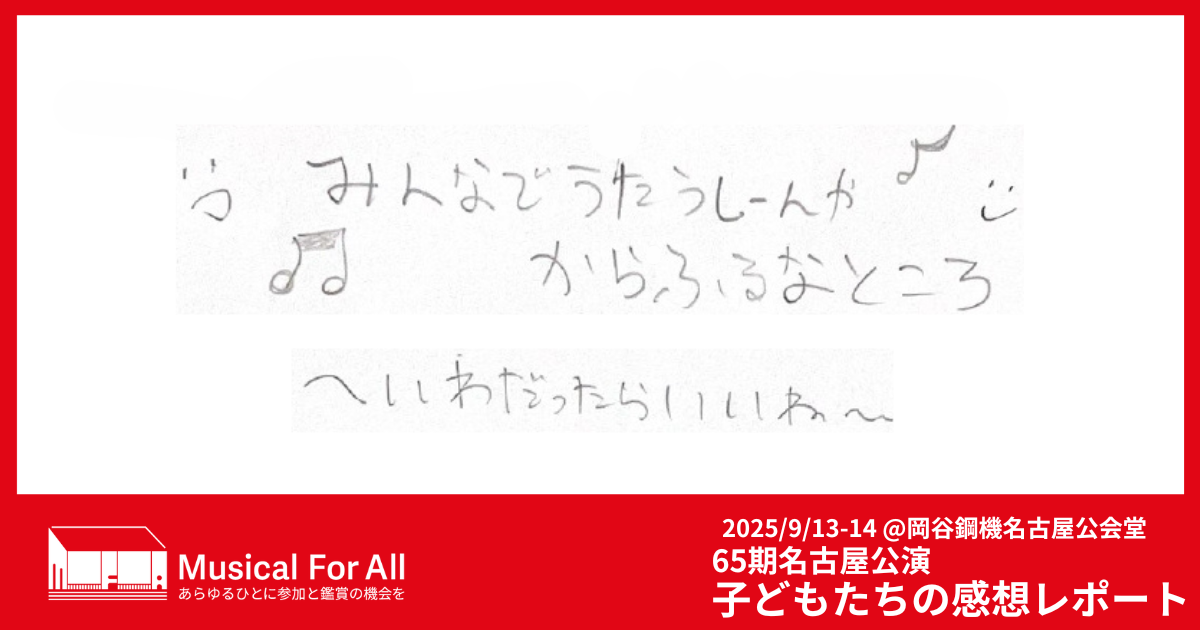 みんなでうたうしーんや
からふるなところ
へいわだったらいいね〜
Musical For All
あらゆるひとに参加と鑑賞の機会を
2025/9/13-14 @岡谷鋼機名古屋公会堂
65期名古屋公演
子どもたちの感想レポート